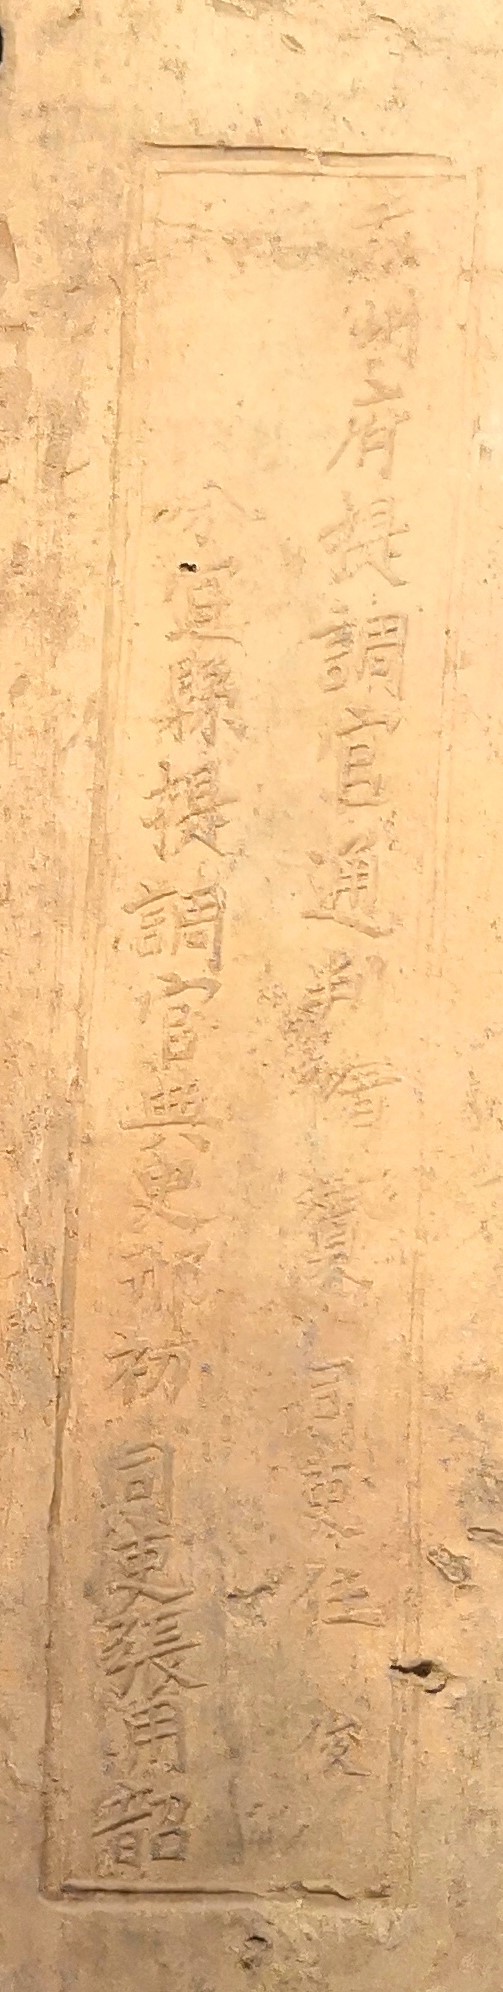 袁州府提調官通判隋贇司吏任俊
分宜縣提調官典史邢初司吏張用韶